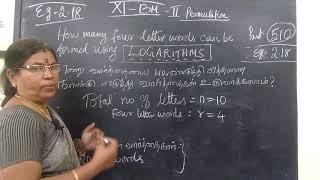 Eg-2.18
XI-BM-II Permutation
How many four letter words can be
formed using LOGARITHMS
Part 510
Eg-2.18
என்ற வார்த்தையை
நான்கு எழுத்து வார்த்தைகள் உருவாக்கலாம்?
Total no of letters = n = 10
Four letter words : r = 4
வார்த்தைகள் :
words